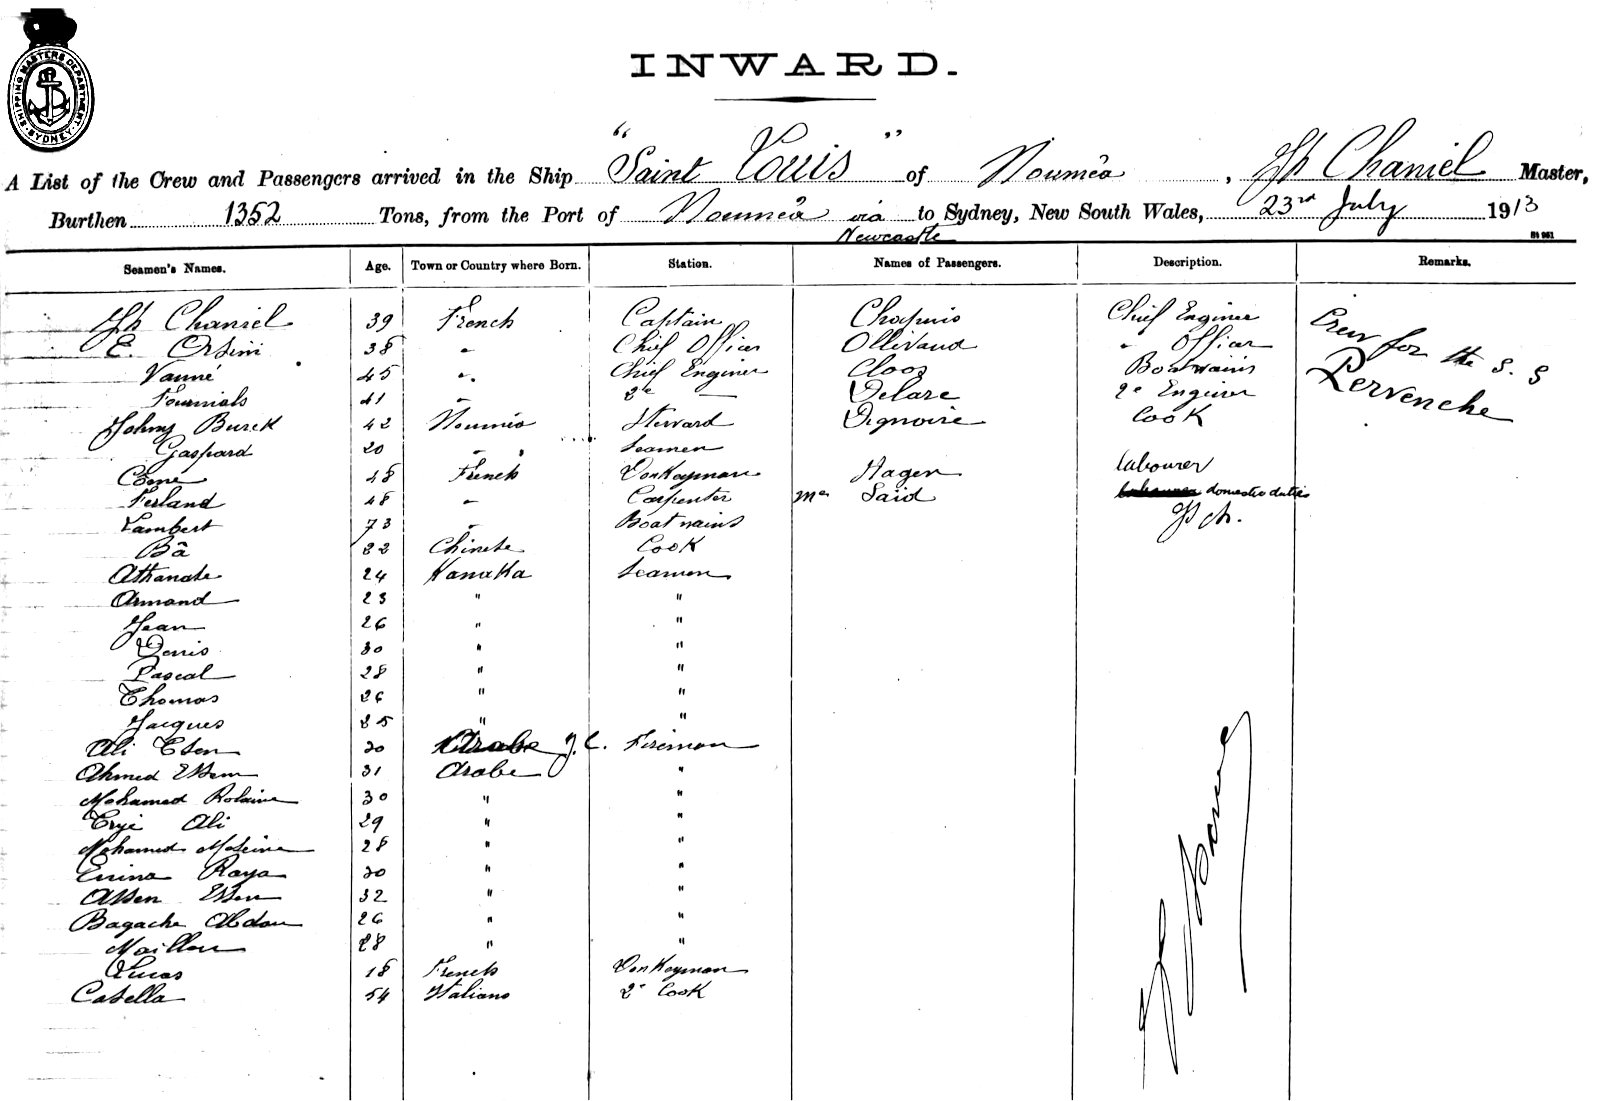 SHIPPING MASTERS DEPARTMENT
SYDNEY
INWARD.
A List of the Crew and Passengers arrived in the Ship "Saint Louis" of Nouméa, Jh Chaniel Master,
Burthen 1352 Tons, from the Port of Nouméa via to Sydney, New South Wales, 23rd July 1913
Newcastle
Seamen's Names. Age. Town or Country where Born. Station. Names of Passengers. Description. Remarks.
Jh Chaniel 39 French Captain Chapuis Chief Enginer Crew for the S. S
E. Orsini 38 " Chief Officer Ollivaud " Officer Pervenche
Vanné 45 " Chief Enginer Cloos Boatwains
Fournials 41 " 2e — Delare 2e Enginer
Johny Burck 42 Nouméa Steward Dignoire Cook
Gaspard 20 " Seamen
Côme 48 French Donkeyman Hagen labourer
Ferland 48 " Carpenter Me Saïd domestic duties
Lambert 73 " Boatwains Jh ch.
Bâ 22 Chinese Cook
Athanase 24 Kanaka Seamen
Armand 23 " "
Jean 26 " "
Denis 30 " "
Pascal 28 " "
Thomas 26 " "
Jacques 25 " "
Ali Esen 30 J. C. Fireman
Ahmed Essen 31 Arabe "
Mohamed Rolaine 30 " "
Erye Ali 29 " "
Mohamed Moseine 28 " "
Enina Raya 30 " "
Assen Essen 32 " "
Bagache Abdou 26 " "
Maillou 28 " "
Lucas 18 French Donkeyman
Casella 54 Italiano 2e Cook